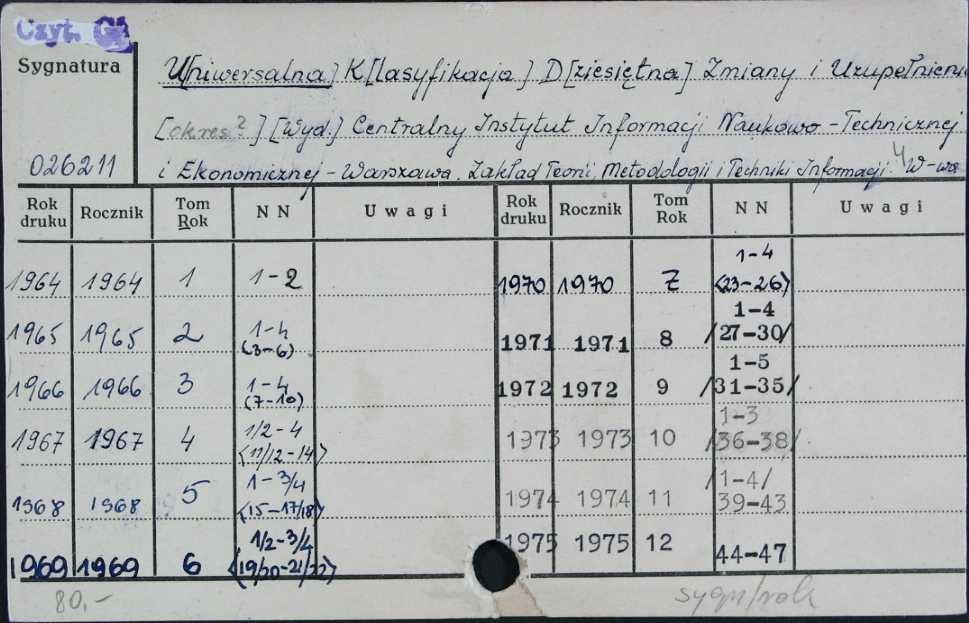 Czyt.
Sygnatura
U[niwersalna] K[lasyfikacja] D[ziesiętna] Zmiany i Uzupełnienia
[okres?] [Wyd.] Centralny Instytut Informacji Naukowo-Technicznej
026211 i Ekonomicznej - Warszawa. Zakład Teorii, Metodologii i Techniki Informacji. W-wa
Rok druku Rocznik Tom Rok N N Uwagi Rok druku Rocznik Tom Rok N N Uwagi
1964 1964 1 1-2 1970 1970 7 1-4 (23-26)
1965 1965 2 1-4 (3-6) 1971 1971 8 1-4 /27-30/
1966 1966 3 1-4 (7-10) 1972 1972 9 1-5 /31-35/
1967 1967 4 1/2-4 (11/12-14) 1973 1973 10 1-3 /36-38/
1968 1968 5 1-3/4 (15-17/18) 1974 1974 11 /1-4/ 39-43
1969 1969 6 1/2-3/4 (19/20-21/22) 1975 1975 12 44-47
80,- sygn/rok